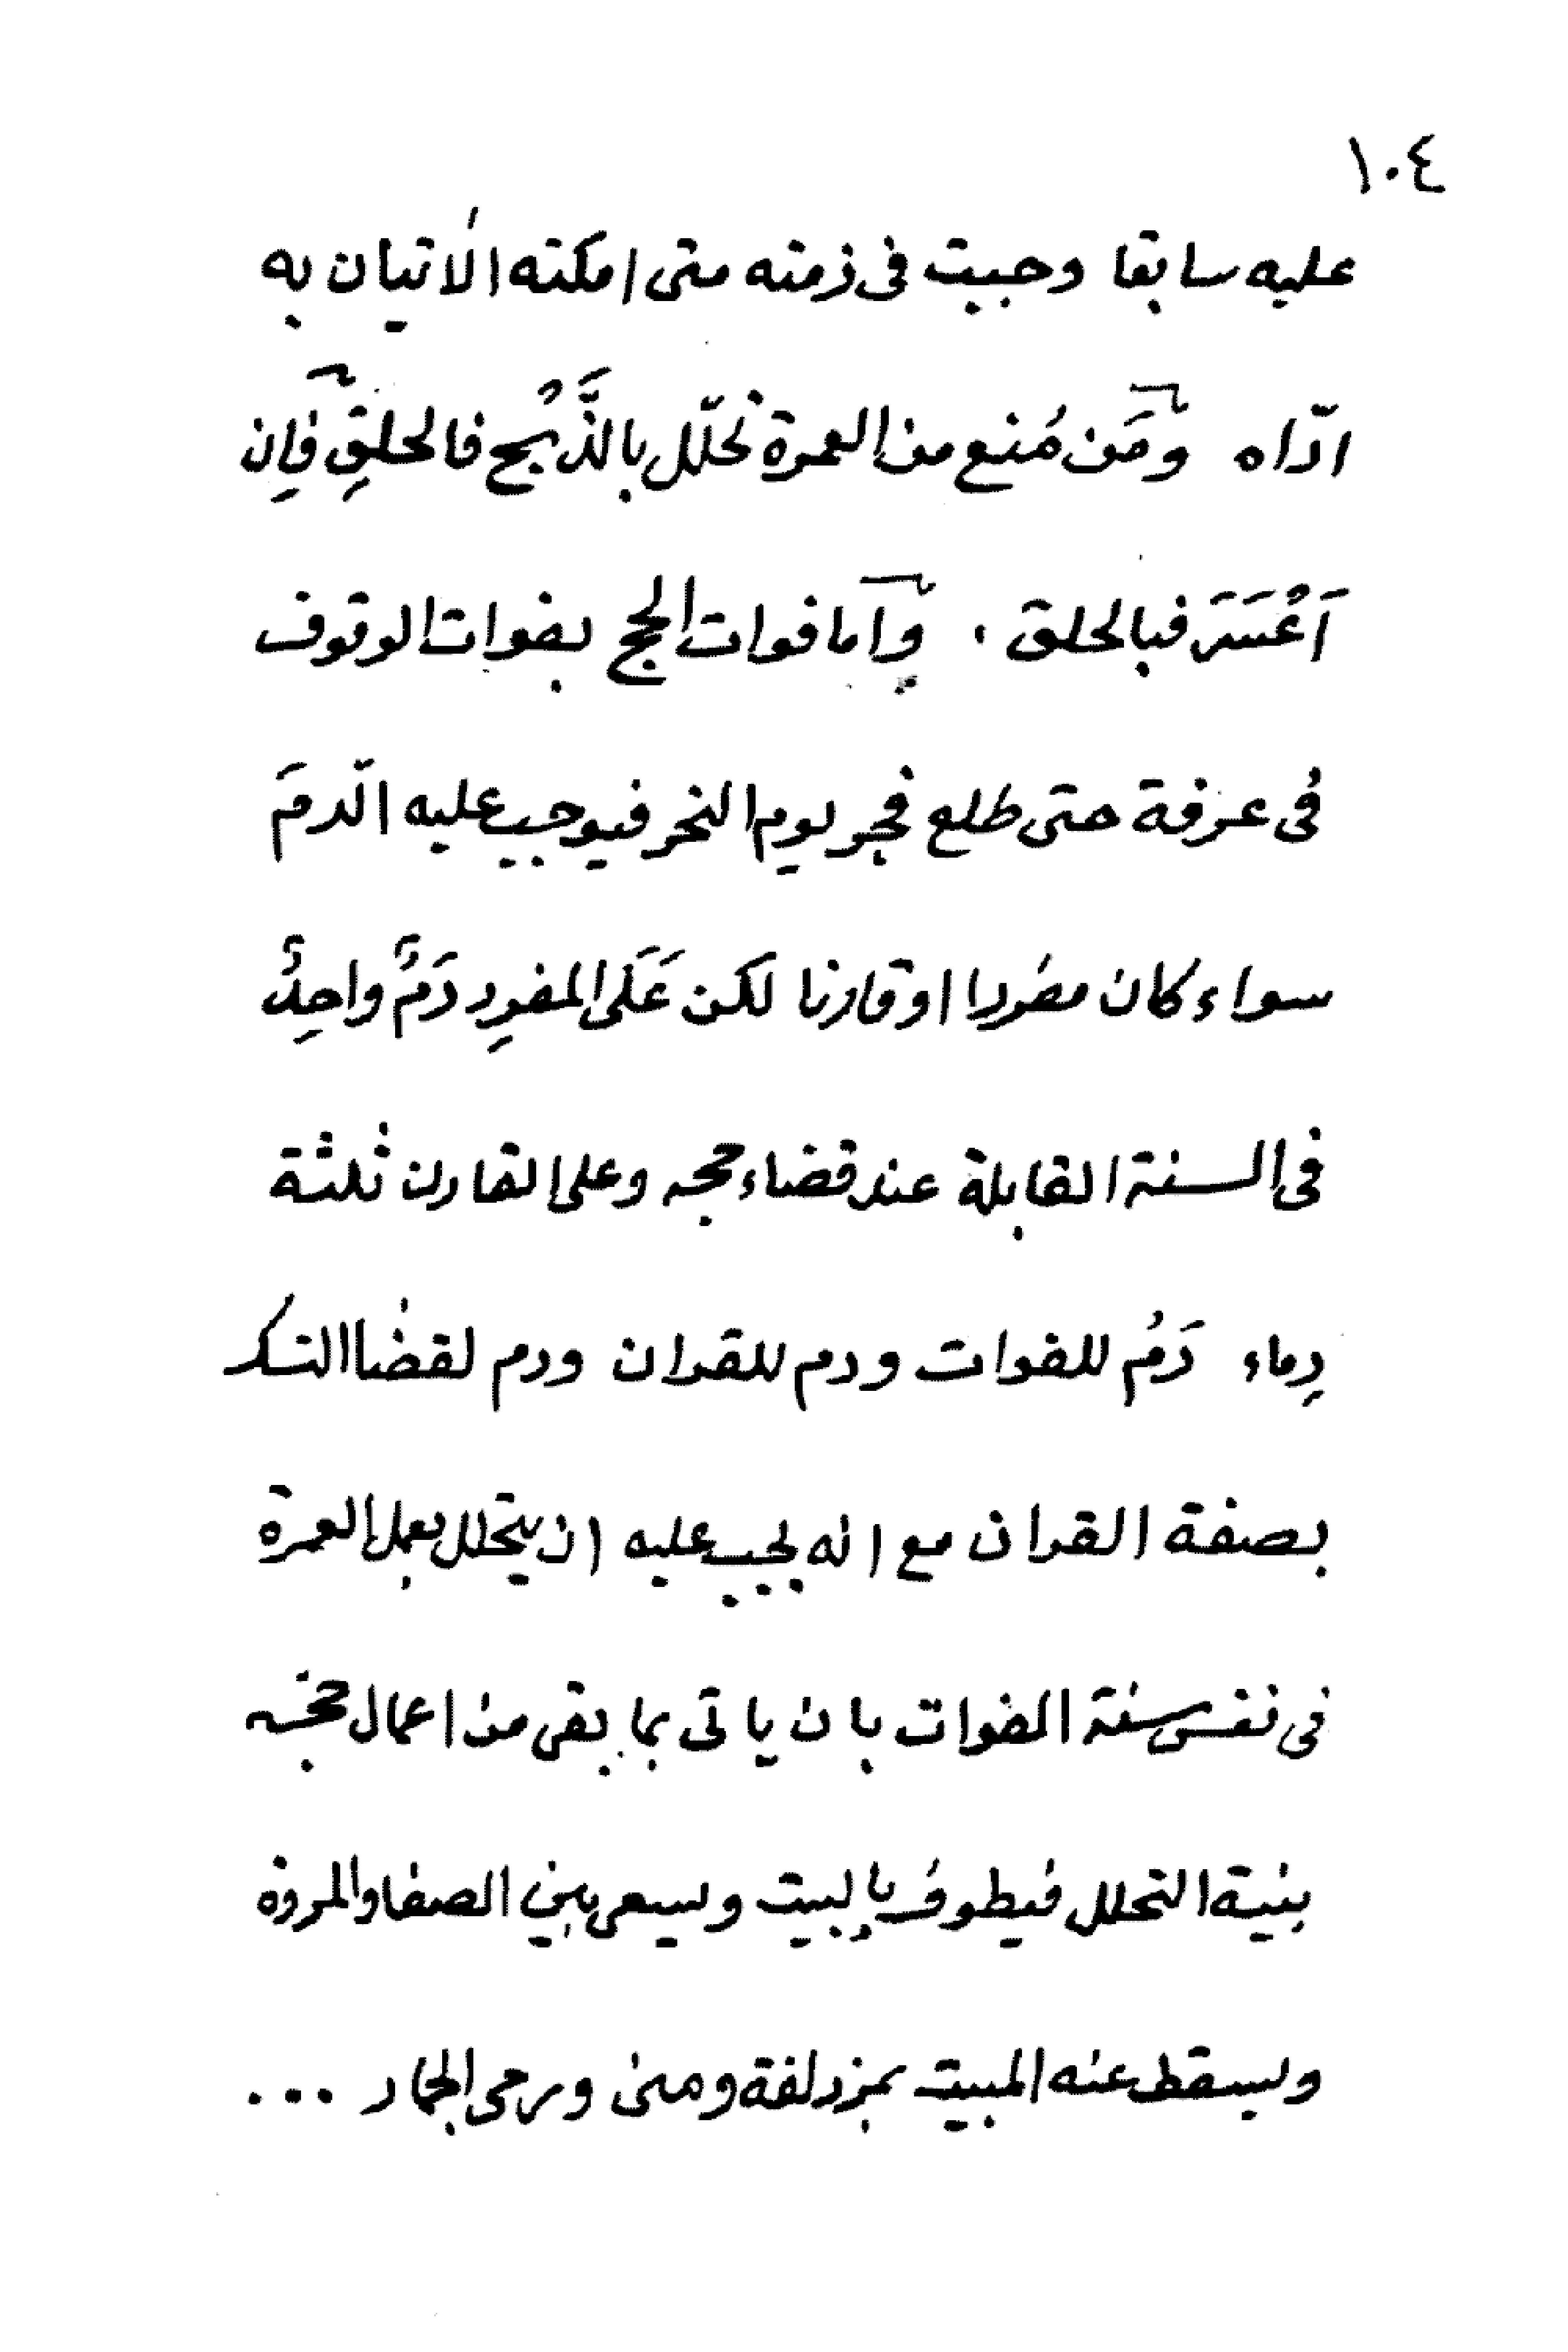 ١٠٤
عليه سابقا وجبت فى ذمته متى امكنه الاتيان به
ادّاه ومَن مُنع من العمرة تحلّل بالذَّبْح فالحلقِ فإن
اَعْسَرَ فبالحلق . واما فوات الحج بفوات الوقوف
فى عرفة حتى طلع فجر يوم النحر فيوجب عليه الّدمَ
سواء كان مفردا او قارنا لكن عَلَى المفرِد دَمٌ واحِدٌ
فى السنة القابلة عند قضاء حجه وعلى القارن ثلثة
دِماء دَمُ للفوات ودم للقران ودم لقضا النسك
بصفة القران مع انه يجب عليه ان يتحلل بعمل العمرة
فى نفس سنة الفوات بان ياتى بما بقى من اعمال حجه
بنية التحلل فيطوف بالبيت ويسعى بين الصفا والمروة
ويسقط عنه المبيت بمزدلفة ومنى ورمى الجمار ...